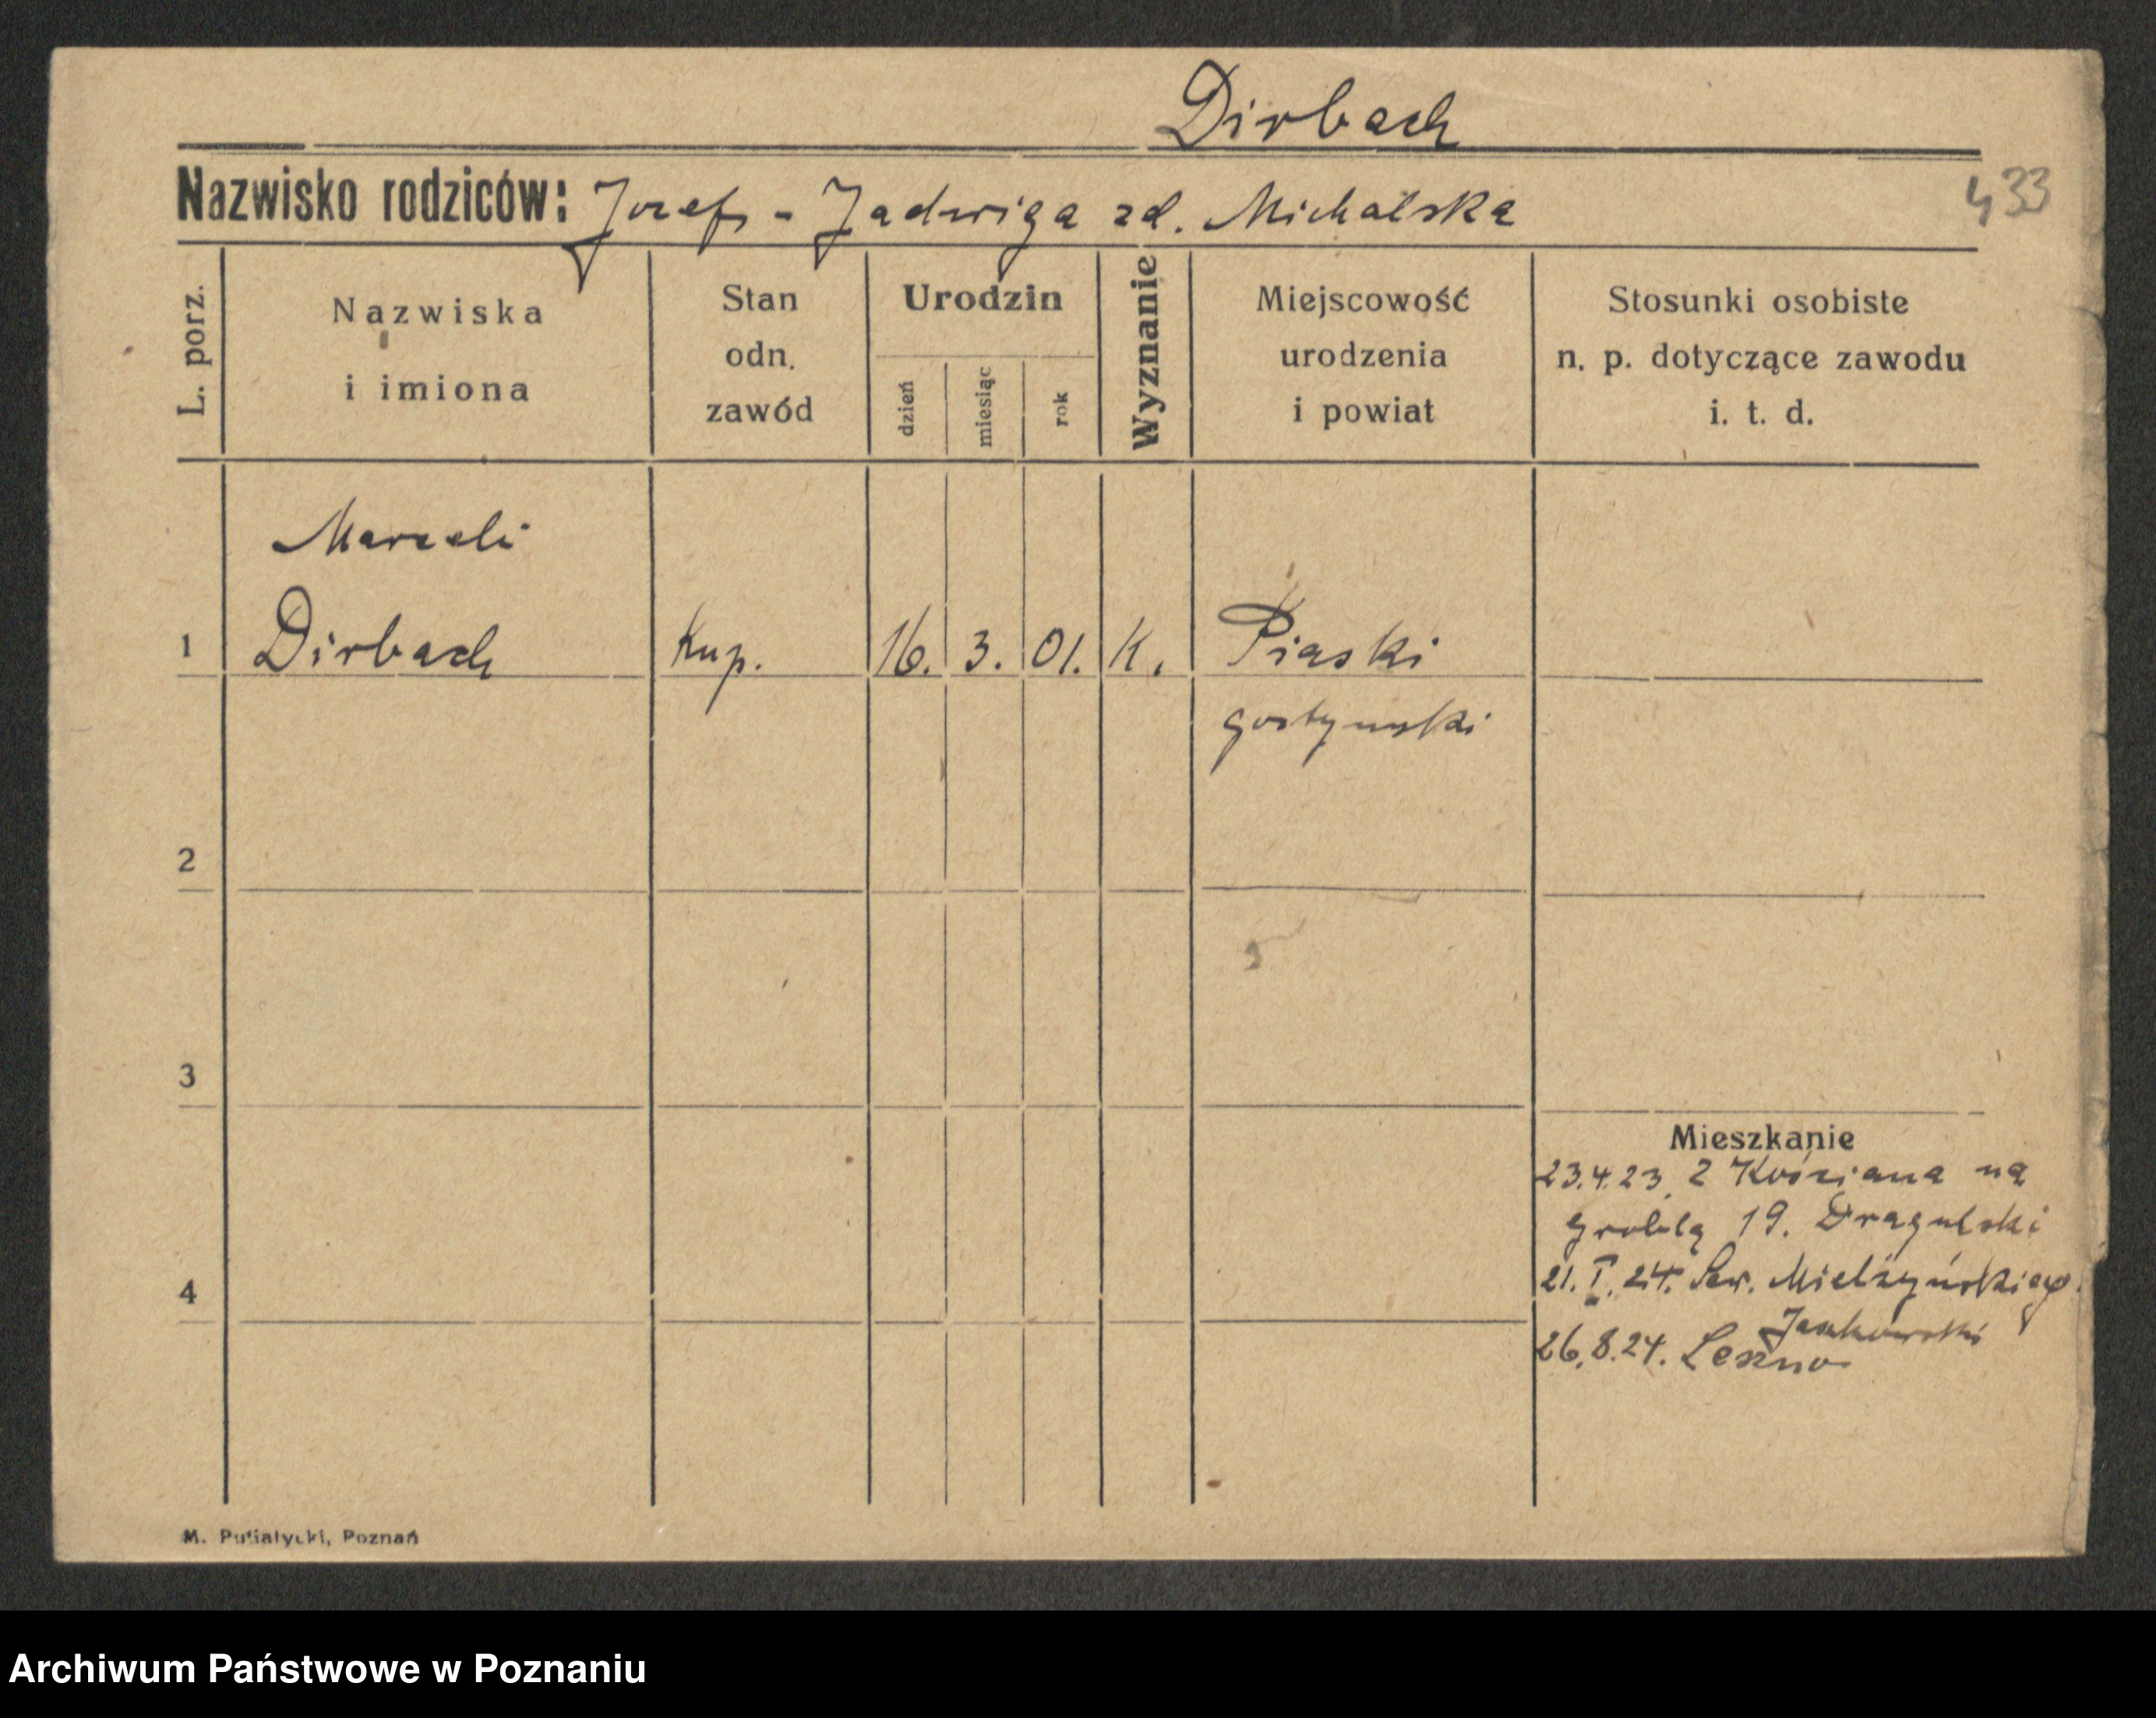 Dirbach
Nazwisko rodziców: Jozef - Jadwiga zd. Michalska
433
L. porz.
Nazwiska
i imiona
Stan
odn.
zawód
Urodzin
dzień
miesiąc
rok
Wyznanie
Miejscowość
urodzenia
i powiat
Stosunki osobiste
n. p. dotyczące zawodu
i. t. d.
Marceli
1 Dirbach Kup. 16. 3. 01. K. Piaski
gostynski
2
3
4
Mieszkanie
23.4.23. z Kościana na
Groblą 19. Dragulski
21. I. 24. Sew. Mielżyńskiego.
Jankowski
26.8.24. Leszno
M. Putiatycki, Poznań
Archiwum Państwowe w Poznaniu